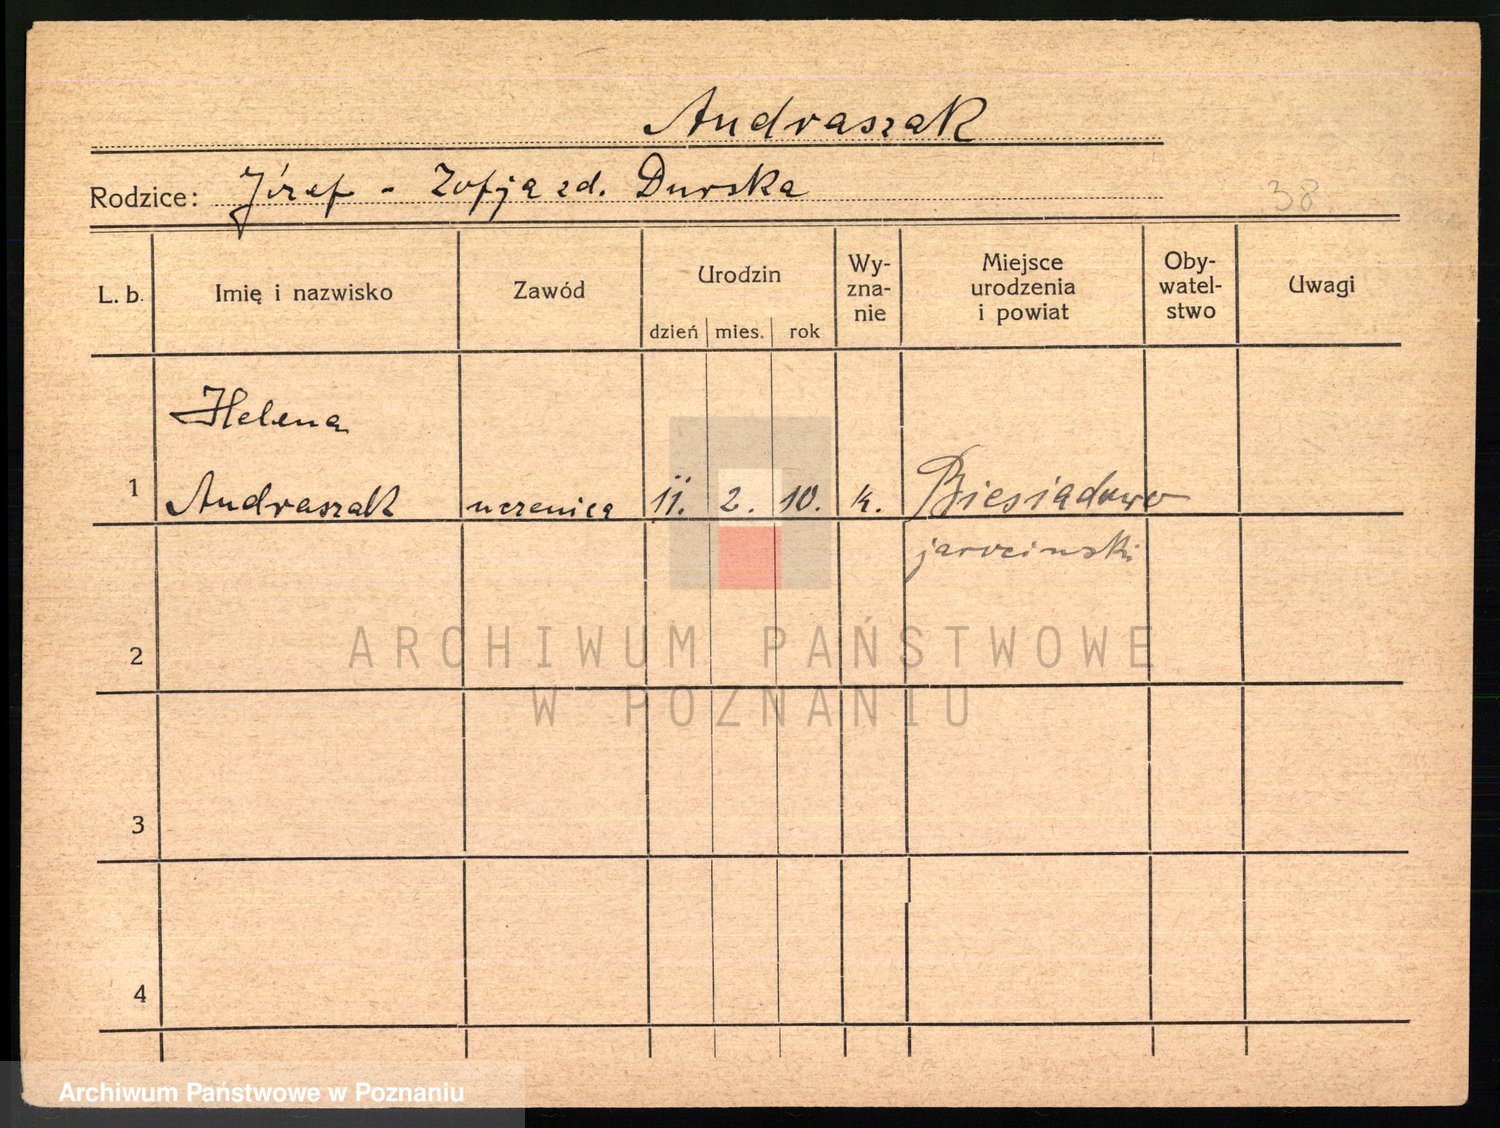 Andraszak
Rodzice: Józef - Zofja zd. Durska
38
L. b.
Imię i nazwisko
Zawód
Urodzin
dzień mies. rok
Wy-
zna-
nie
Miejsce
urodzenia
i powiat
Oby-
watel-
stwo
Uwagi
Helena
1 Andraszak uczenica 11. 2. 10. k. Biesiadowo
jarocinski
2
3
4
ARCHIWUM PAŃSTWOWE
W POZNANIU
Archiwum Państwowe w Poznaniu